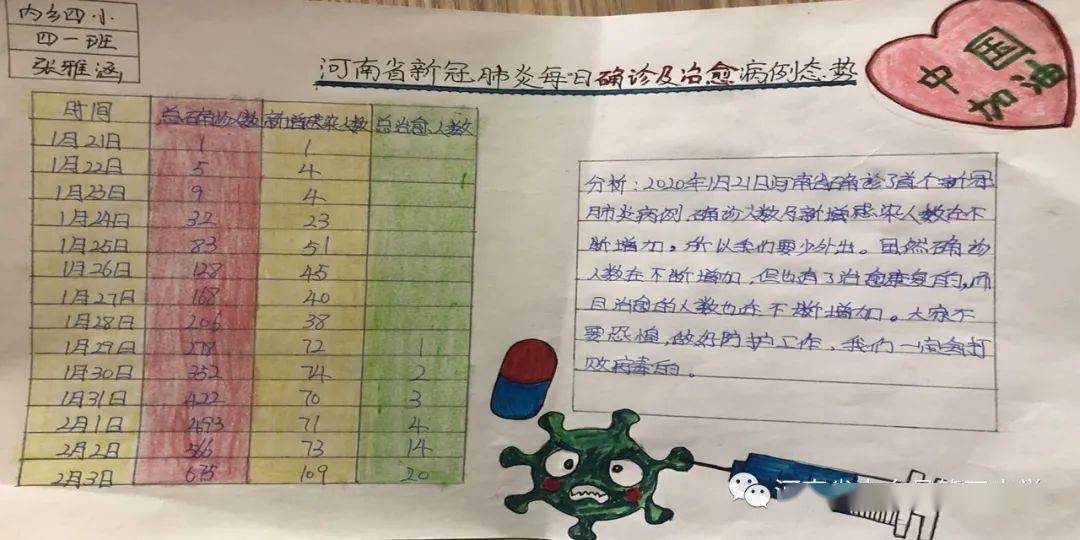 内乡四小
四一班
张雅涵
河南省新冠肺炎每日确诊及治愈病例态势
中国
加油
时间 总确诊人数 新增感染人数 总治愈人数
1月21日 1 1
1月22日 5 4
1月23日 9 4
1月24日 32 23
1月25日 83 51
1月26日 128 45
1月27日 168 40
1月28日 206 38
1月29日 278 72 1
1月30日 352 74 2
1月31日 422 70 3
2月1日 493 71 4
2月2日 566 73 14
2月3日 675 109 20
分析:2020年1月21日河南省确诊了首个新冠
肺炎病例,确诊人数及新增感染人数在不
断增加,所以我们要少外出。虽然确诊
人数在不断增加,但也有了治愈康复的,而
且治愈的人数也在不断增加。大家不
要恐惧,做好防护工作,我们一定会打
败病毒的。